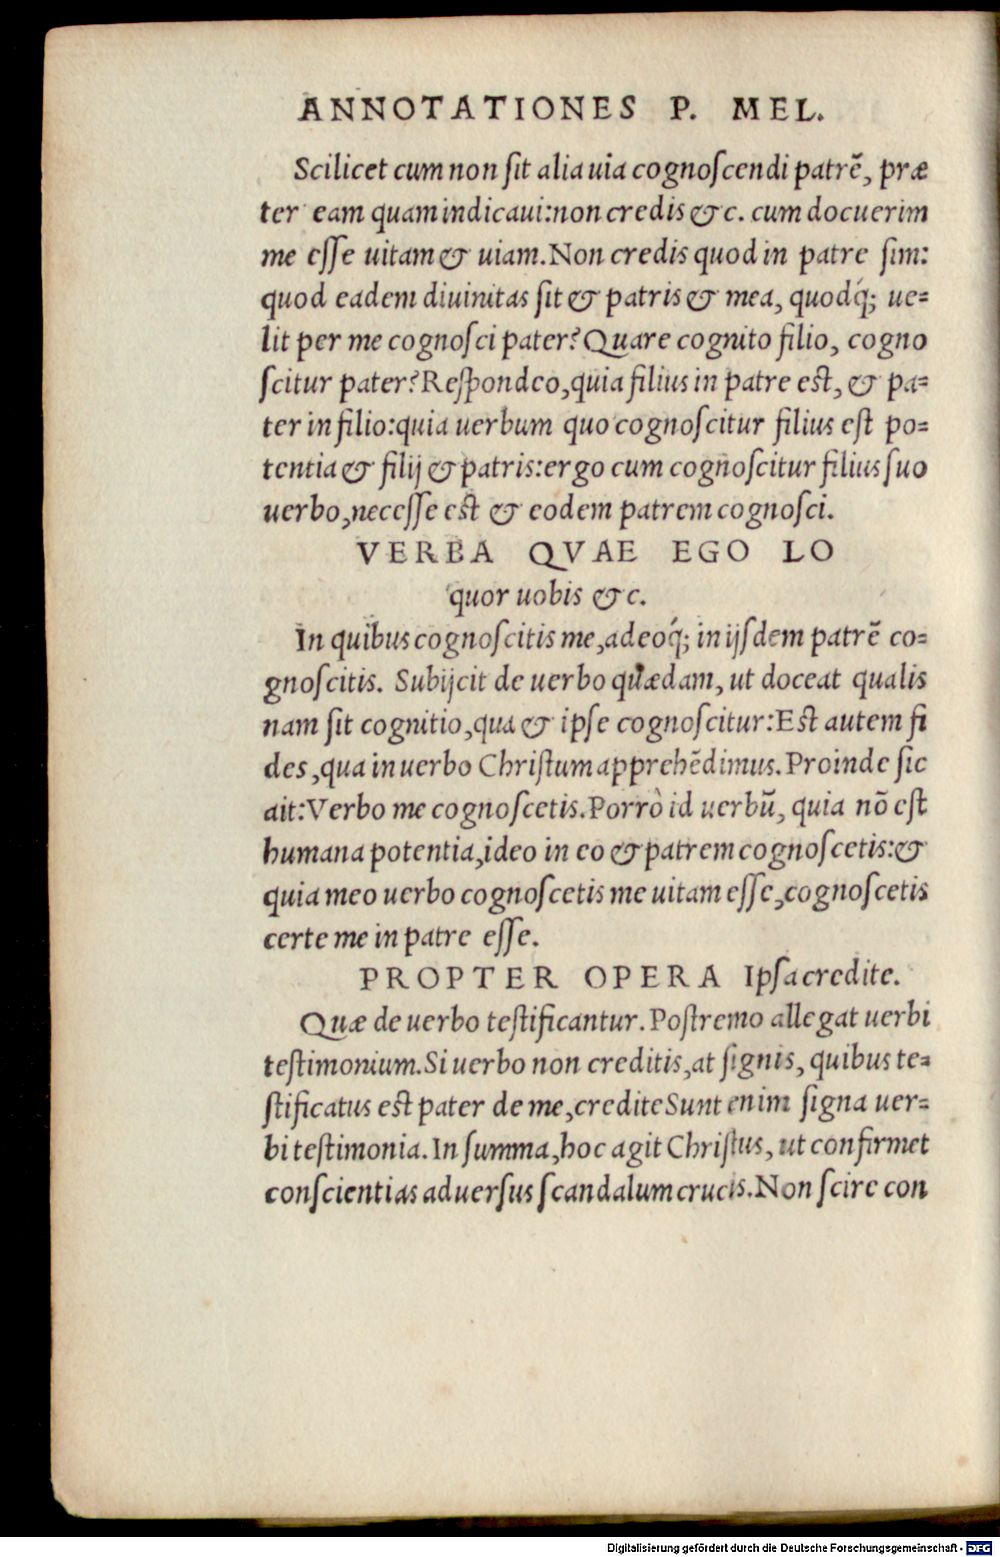 ANNOTATIONES P. MEL.
Scilicet cum non ſit alia uia cognoſcendi patrē, præ
ter eam quam indicaui: non credis &c. cum docuerim
me eſſe uitam & uiam. Non credis quod in patre ſim:
quod eadem diuinitas ſit & patris & mea, quodq́; ue=
lit per me cognoſci pater? Quare cognito filio, cogno
ſcitur pater? Reſpondeo, quia filius in patre eſt, & pa=
ter in filio: quia uerbum quo cognoſcitur filius eſt po=
tentia & filij & patris: ergo cum cognoſcitur filius ſuo
uerbo, neceſſe eſt & eodem patrem cognoſci.
VERBA QVAE EGO LO
quor uobis &c.
In quibus cognoſcitis me, adeoq́; in ijſdem patrē co=
gnoſcitis. Subijcit de uerbo quædam, ut doceat qualis
nam ſit cognitio, qua & ipſe cognoſcitur: Eſt autem fi
des, qua in uerbo Chriſtum apprehēdimus. Proinde ſic
ait: Verbo me cognoſcetis. Porrò id uerbū, quia nō eſt
humana potentia, ideo in eo & patrem cognoſcetis: &
quia meo uerbo cognoſcetis me uitam eſſe, cognoſcetis
certe me in patre eſſe.
PROPTER OPERA Ipſa credite.
Quæ de uerbo teſtificantur. Poſtremo allegat uerbi
teſtimonium. Si uerbo non creditis, at ſignis, quibus te=
ſtificatus eſt pater de me, credite Sunt enim ſigna uer=
bi teſtimonia. In ſumma, hoc agit Chriſtus, ut confirmet
conſcientias aduerſus ſcandalum crucis. Non ſcire con
Digitalisierung gefördert durch die Deutsche Forschungsgemeinschaft - DFG